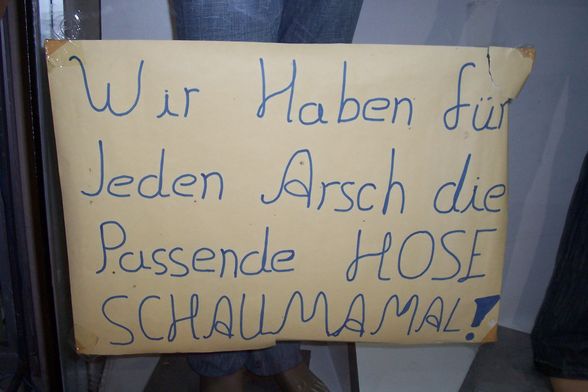 Wir Haben für
Jeden Arsch die
Passende HOSE
SCHAUMAMAL!